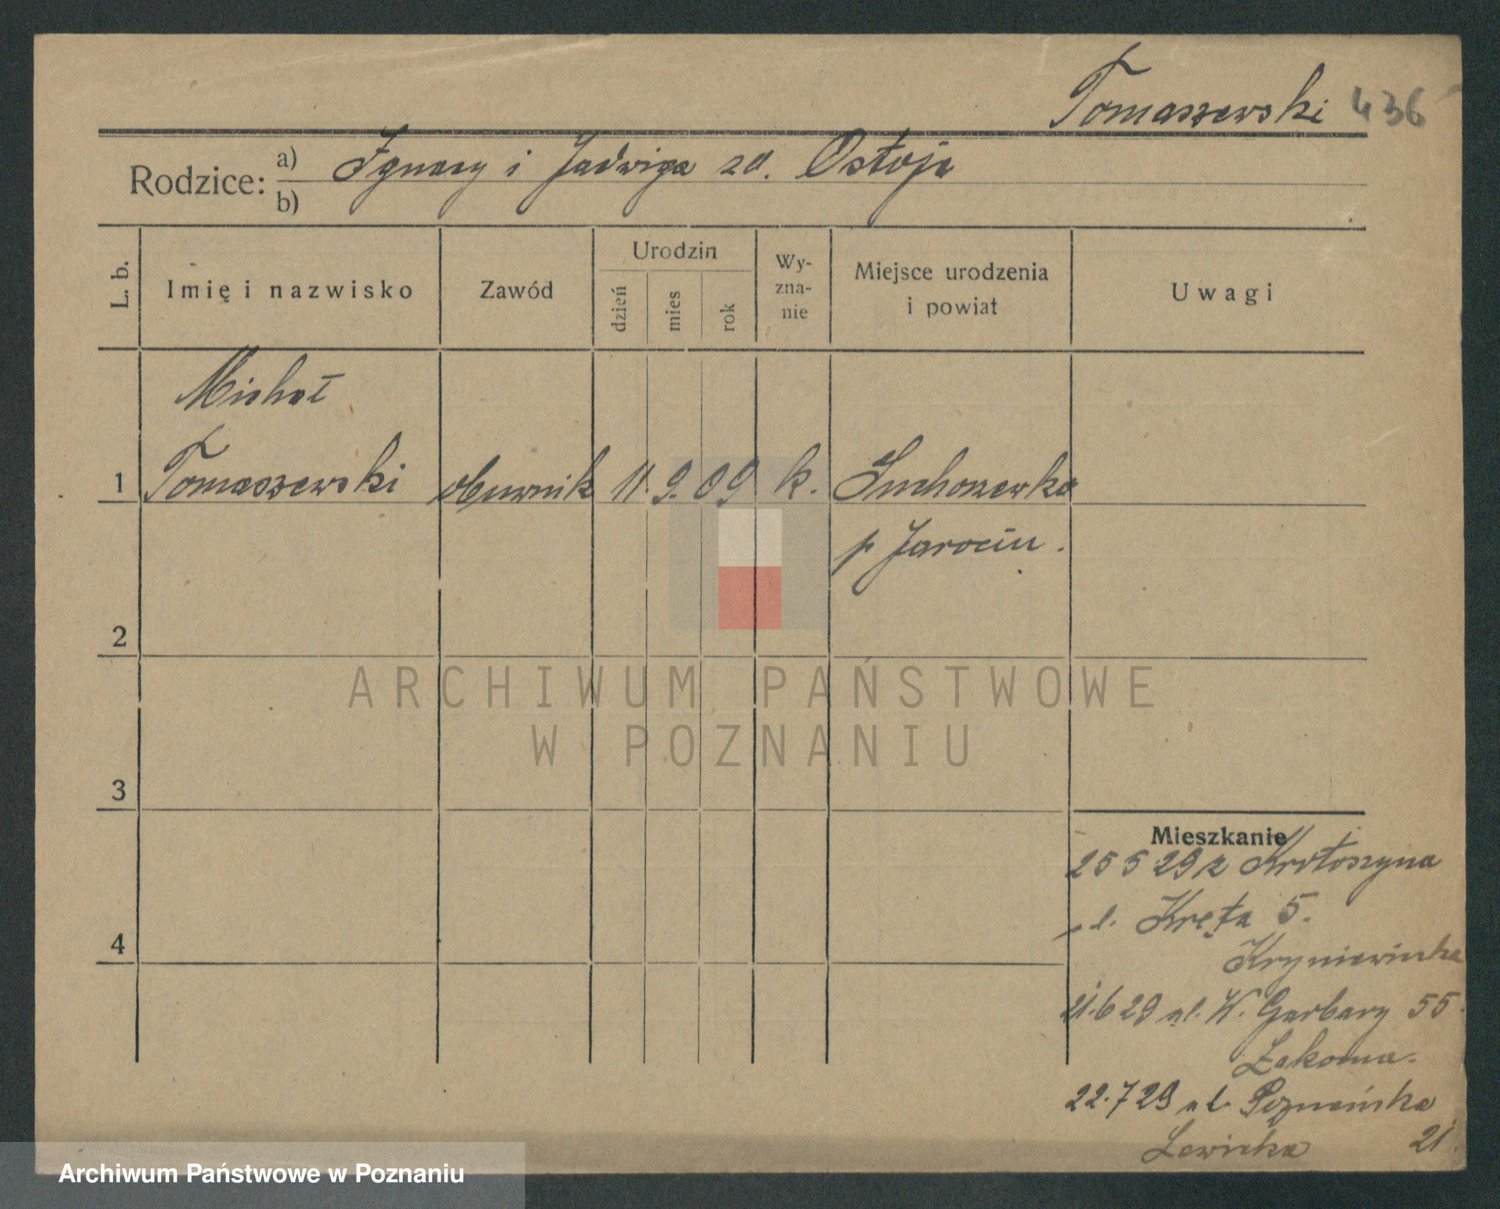 Tomaszewski 436
Rodzice: a) Ignacy i Jadwiga zd. Ostoja
b)
L. b. Imię i nazwisko Zawód Urodzin dzień mies rok Wy-zna-nie Miejsce urodzenia i powiat Uwagi
Michał
1 Tomaszewski obuwnik 11. 9. 09 k. Suchorzewko
p Jarocin.
2
ARCHIWUM PAŃSTWOWE
W POZNANIU
3
Mieszkanie
25 5 29 z Krotoszyna
ul. Kręta 5.
4
Kryniewicka
21.6 29 ul. W. Garbary 55.
Łakoma.
22.7 29 ul. Poznańska
Lewicka 21.
Archiwum Państwowe w Poznaniu